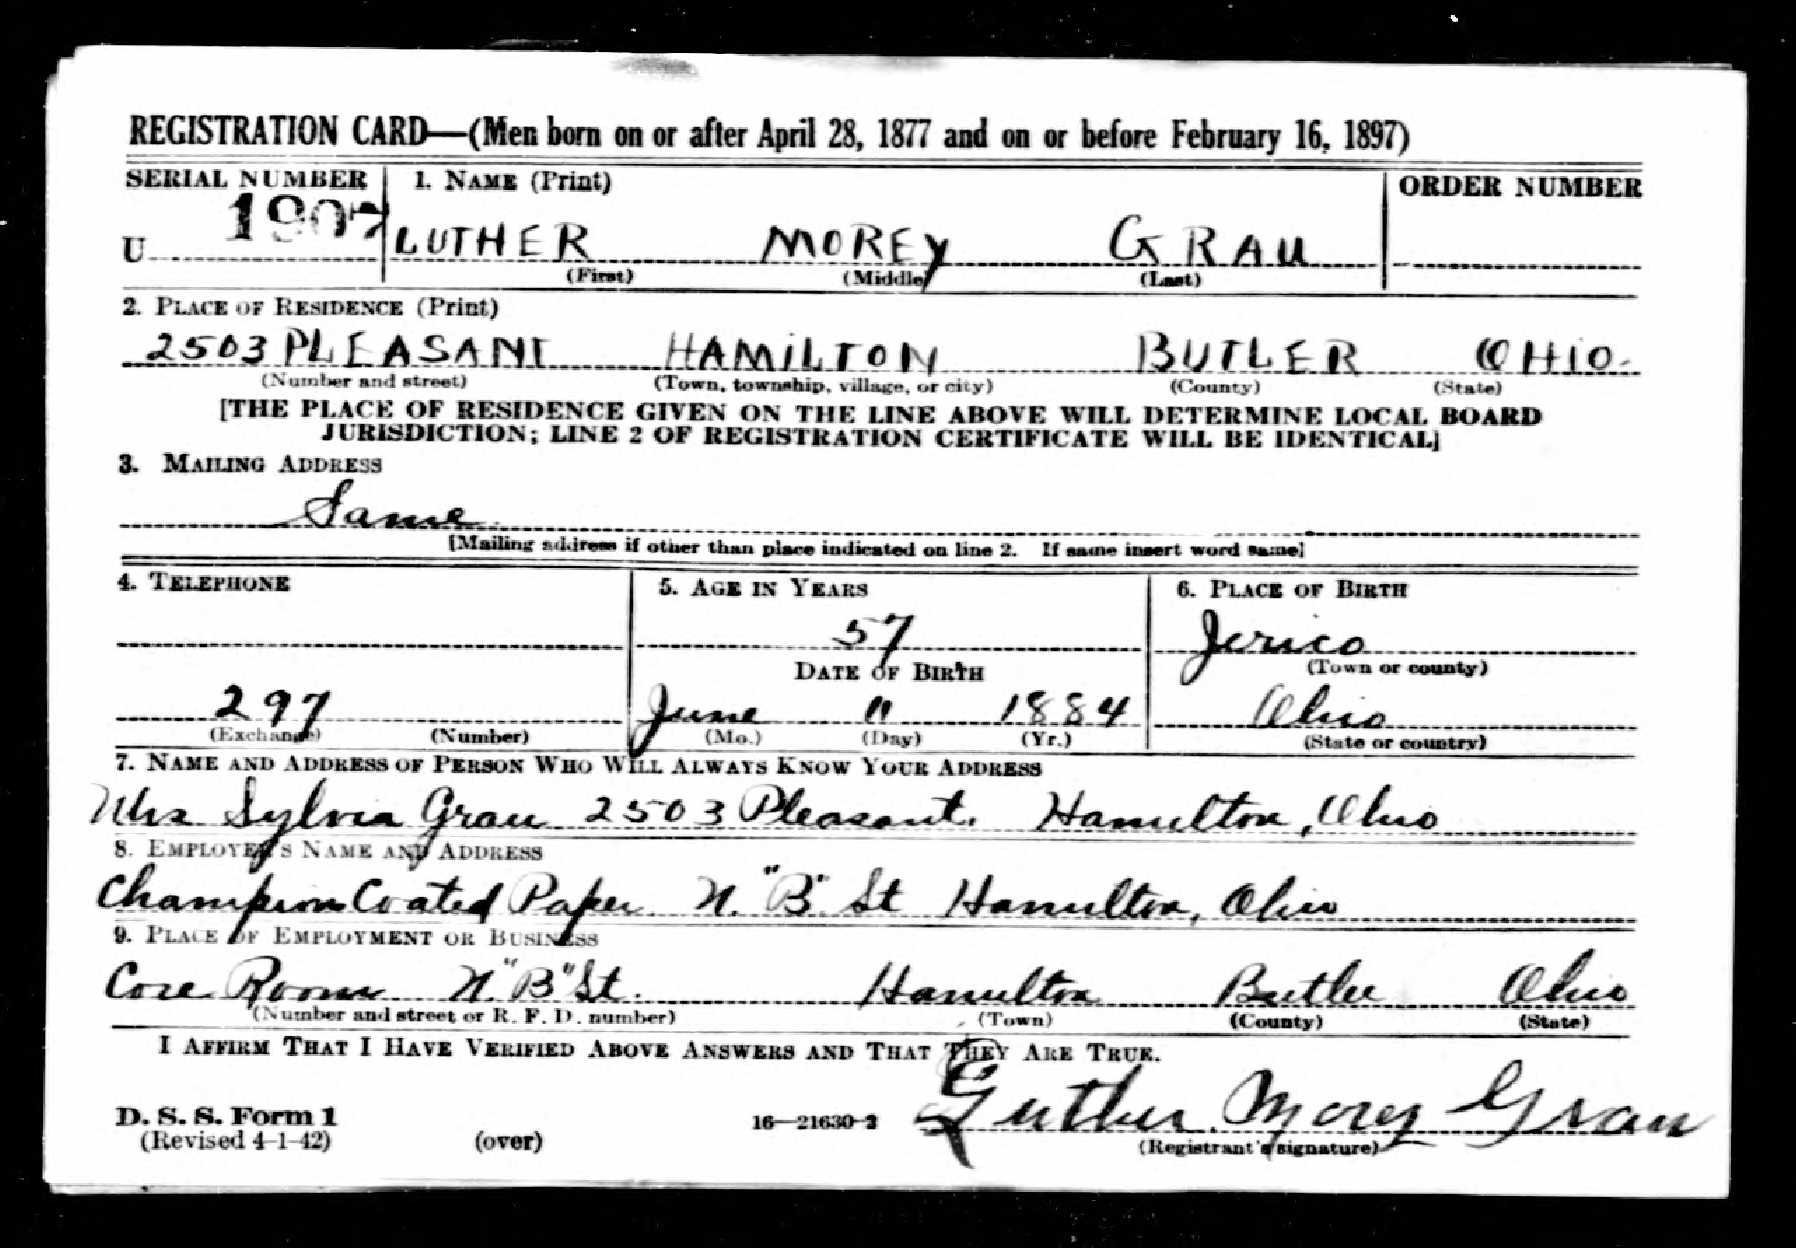 REGISTRATION CARD—(Men born on or after April 28, 1877 and on or before February 16, 1897)
SERIAL NUMBER 1. NAME (Print) ORDER NUMBER
U 1907 LUTHER MOREY GRAU
(First) (Middle) (Last)
2. PLACE OF RESIDENCE (Print)
2503 PLEASANT HAMILTON BUTLER OHIO
(Number and street) (Town, township, village, or city) (County) (State)
[THE PLACE OF RESIDENCE GIVEN ON THE LINE ABOVE WILL DETERMINE LOCAL BOARD
JURISDICTION; LINE 2 OF REGISTRATION CERTIFICATE WILL BE IDENTICAL]
3. MAILING ADDRESS
Same
[Mailing address if other than place indicated on line 2. If same insert word same]
4. TELEPHONE 5. AGE IN YEARS 6. PLACE OF BIRTH
57 Jerico
DATE OF BIRTH (Town or county)
297 June 11 1884 Ohio
(Exchange) (Number) (Mo.) (Day) (Yr.) (State or country)
7. NAME AND ADDRESS OF PERSON WHO WILL ALWAYS KNOW YOUR ADDRESS
Mrs Sylvia Grau 2503 Pleasant. Hamilton, Ohio
8. EMPLOYER'S NAME AND ADDRESS
Champion Coated Paper N. "B" St Hamilton, Ohio
9. PLACE OF EMPLOYMENT OR BUSINESS
Core Room N. "B" St. Hamilton Butler Ohio
(Number and street or R. F. D. number) (Town) (County) (State)
I AFFIRM THAT I HAVE VERIFIED ABOVE ANSWERS AND THAT THEY ARE TRUE.
Luther Morey Grau
D. S. S. Form 1
(Revised 4-1-42) (over) 16—21630-2 (Registrant's signature)